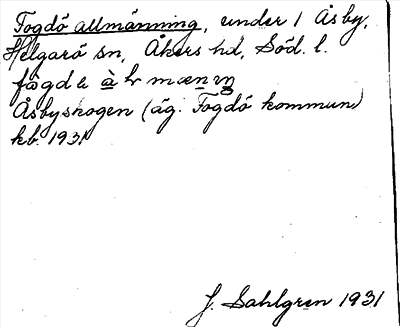 Fogdö allmänning, under 1 Åsby,
Helgarö sn, Åkers hd, Söd. l.
Åsbyskogen (äg. Fogdö kommun)
kb. 1931
J. Sahlgren 1931